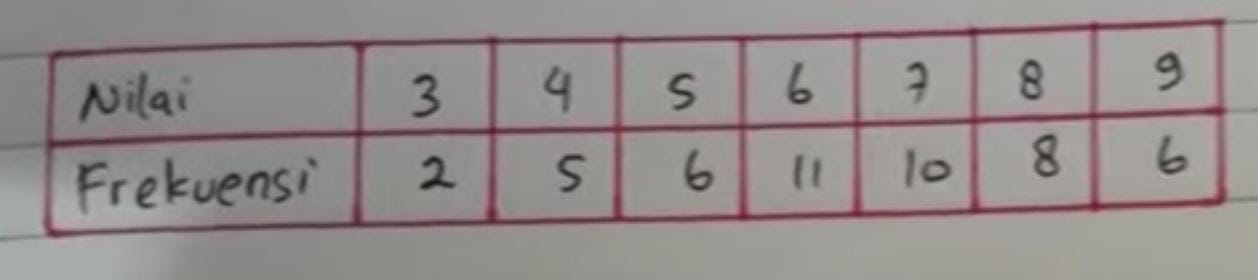 Nilai 3 4 5 6 7 8 9
Frekuensi 2 5 6 11 10 8 6